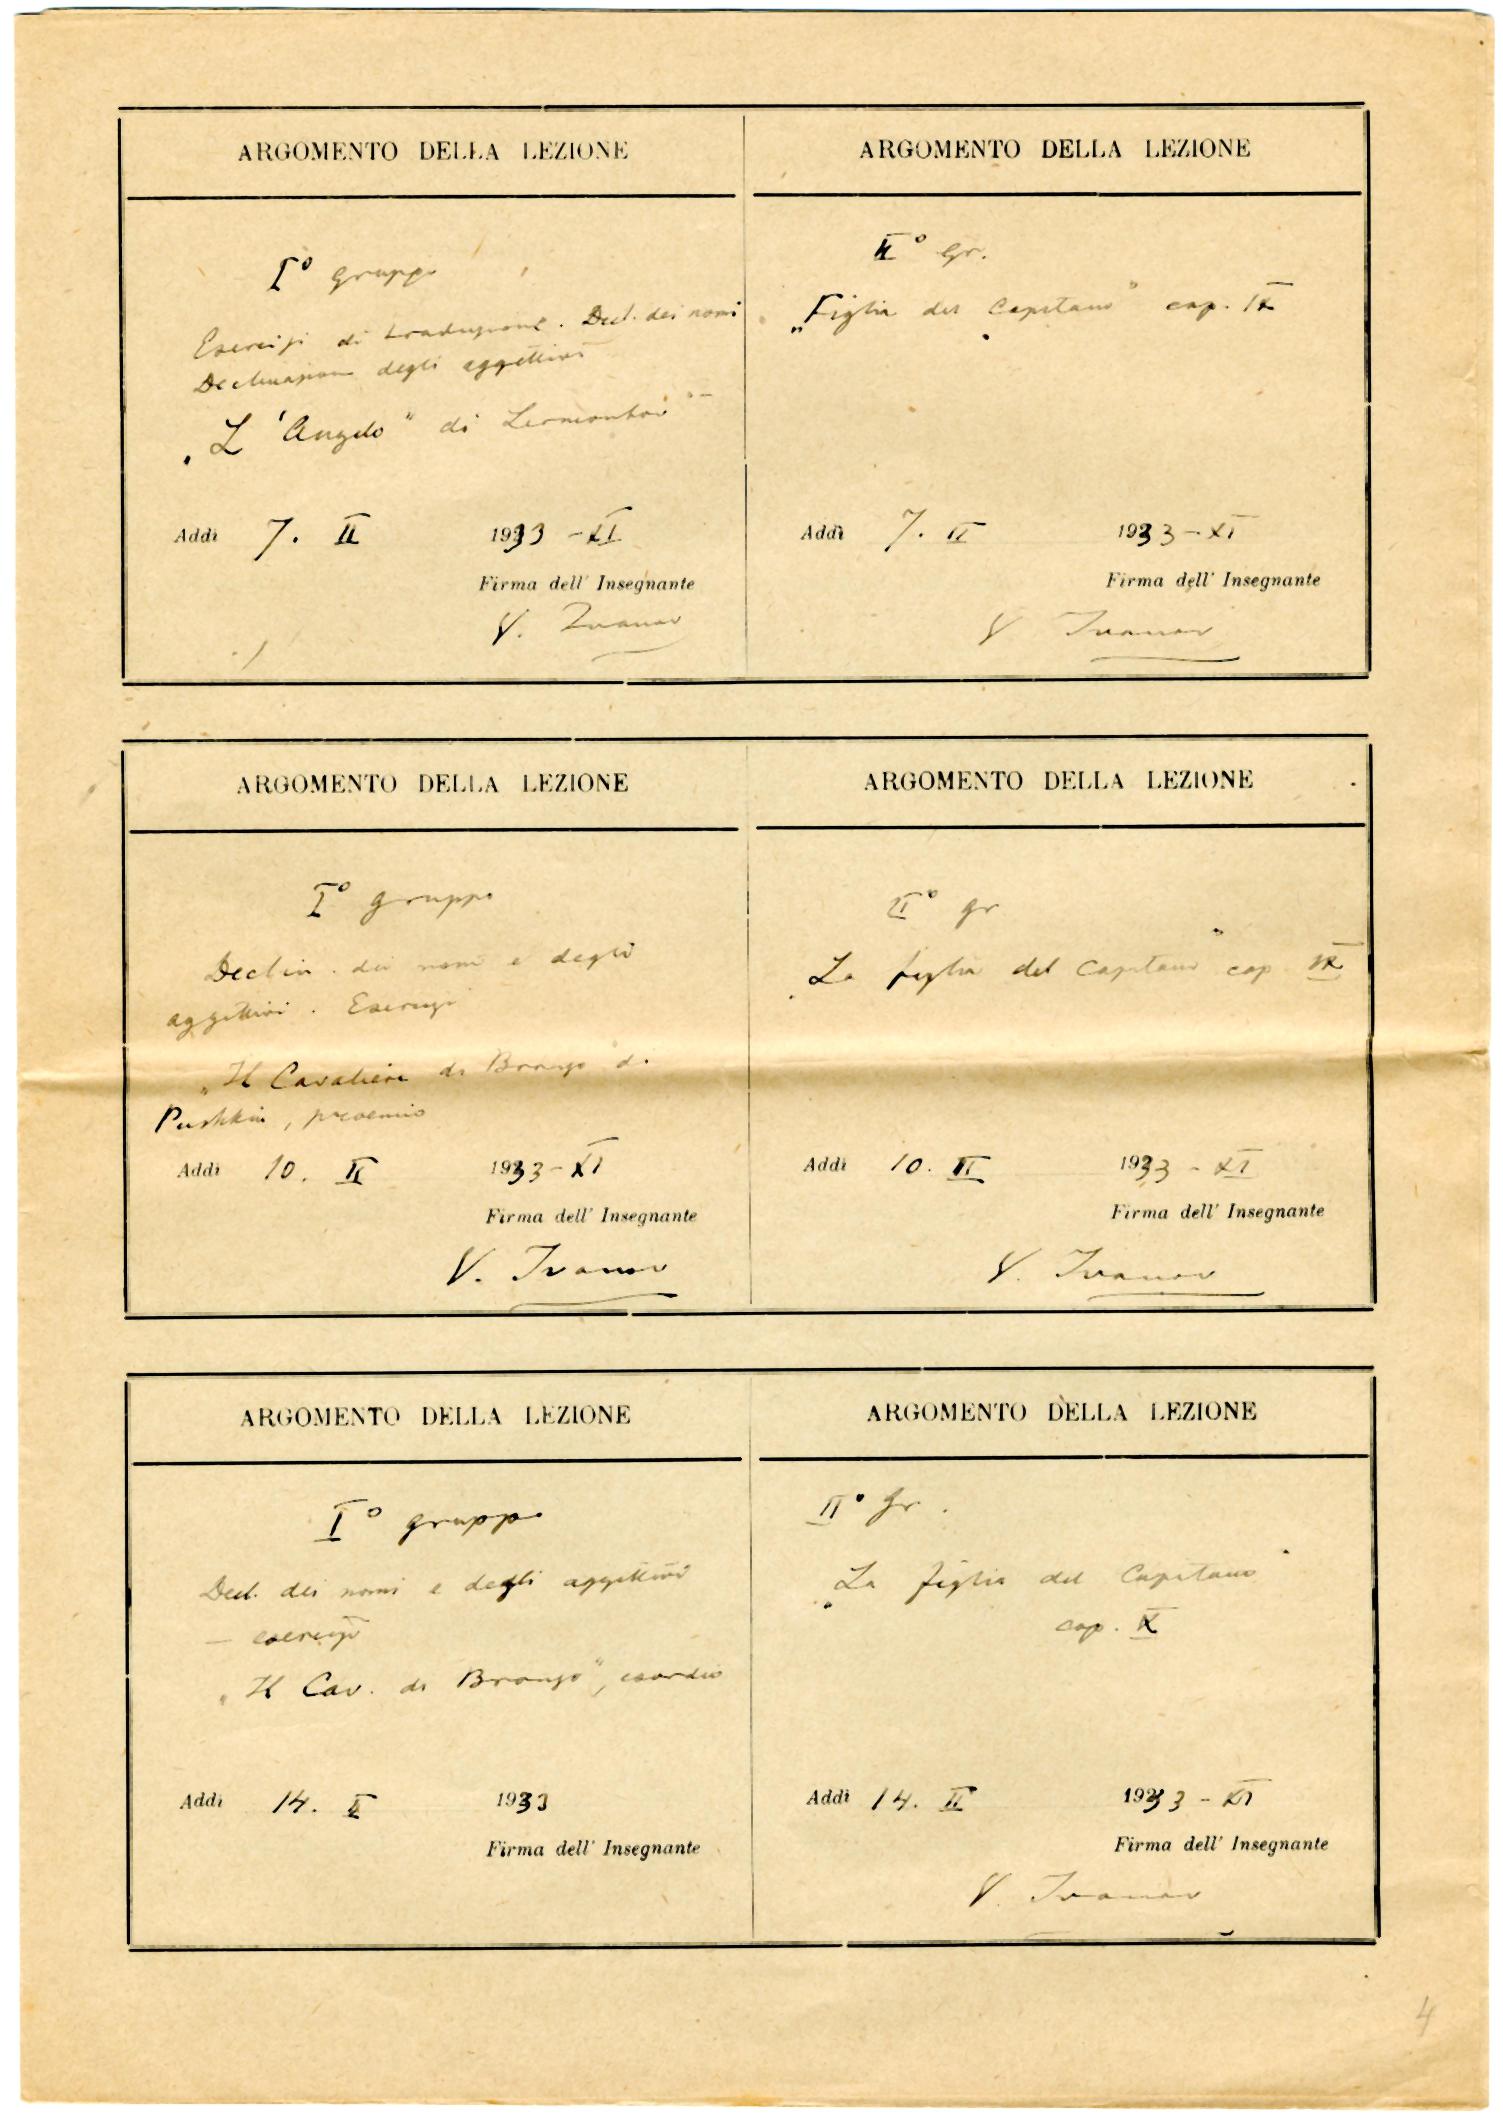 ARGOMENTO DELLA LEZIONE
I° gruppo
Esercizi di traduzione. Decl. dei nomi
Declinazione degli aggettivi
„L'Angelo" di Lermontov
Addì 7. II 1933 - XI
Firma dell' Insegnante
V. Ivanov
ARGOMENTO DELLA LEZIONE
II° gr.
„Figlia del Capitano" cap. IX
Addì 7. II 1933 - XI
Firma dell' Insegnante
V Ivanov
ARGOMENTO DELLA LEZIONE
I° gruppo
Declin. dei nomi e degli
aggettivi. Esercizi
„Il Cavaliere di Bronzo di
Pushkin, proemio
Addì 10. II 1933 - XI
Firma dell' Insegnante
V. Ivanov
ARGOMENTO DELLA LEZIONE
II° gr
„La figlia del Capitano" cap IX
Addì 10. II 1933 - XI
Firma dell' Insegnante
V. Ivanov
ARGOMENTO DELLA LEZIONE
I° gruppo
Decl. dei nomi e degli aggettivi
— esercizi
„Il Cav. di Bronzo", esordio
Addì 14. II 1933
Firma dell' Insegnante
ARGOMENTO DELLA LEZIONE
II° gr.
„La figlia del Capitano"
cap. X
Addì 14. II 1933 - XI
Firma dell' Insegnante
V. Ivanov
4